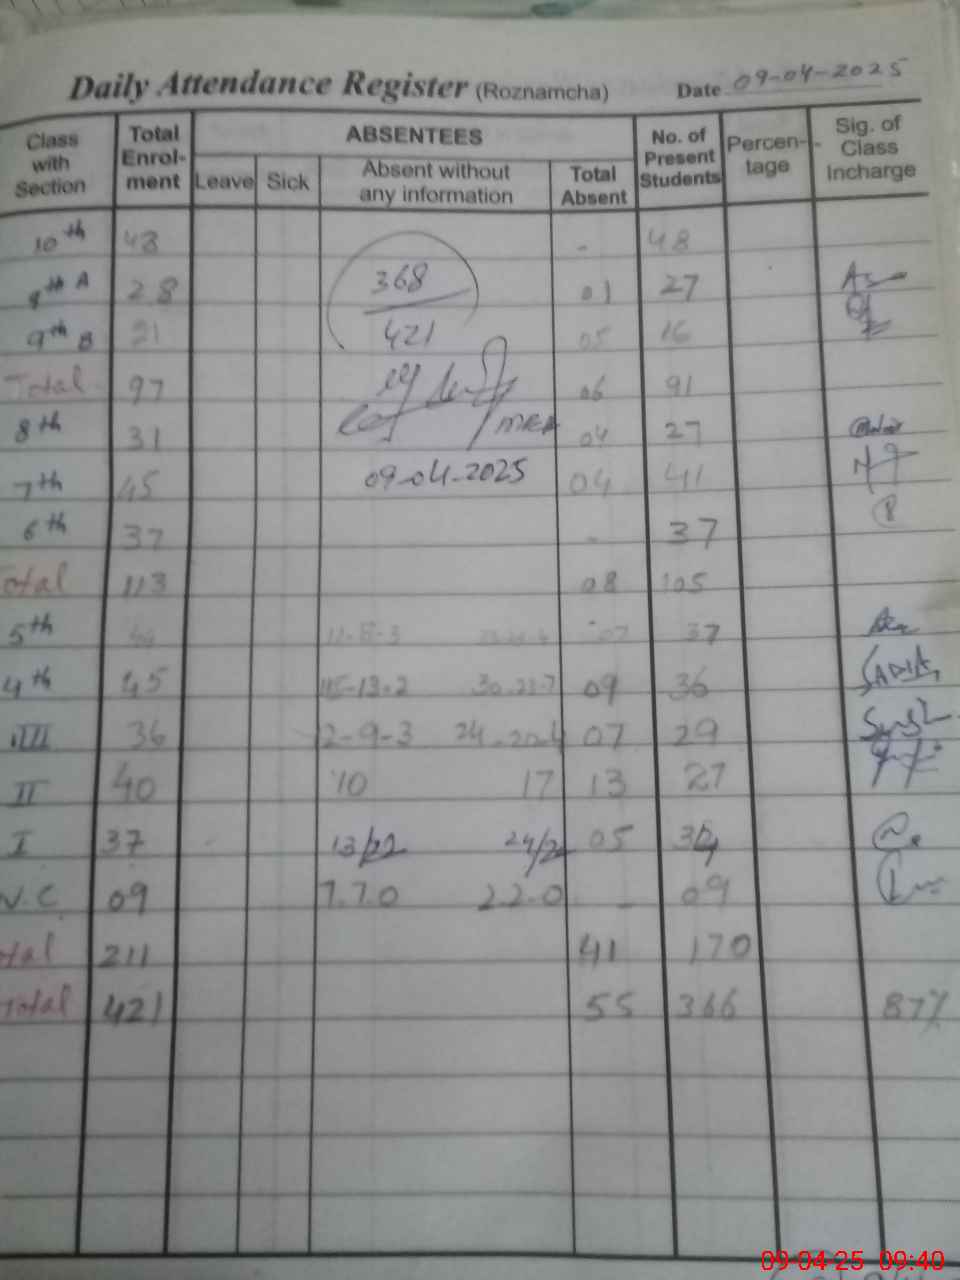 Daily Attendance Register (Roznamcha) Date 09-04-2025
Class with Section Total Enrol-ment ABSENTEES No. of Present Students Percen-tage Sig. of Class Incharge
Leave Sick Absent without any information Total Absent
10th 48 - 48
9th A 28 368 01 27
9th B 21 421 05 16
Total 97 06 91
8th 31 MEA 04 27
7th 45 09-04-2025 04 41
6th 37 - 37
Total 113 08 105
5th 11-8-3 07 37
4th 45 15-13-2 30-23-7 09 36 SADIA
III 36 12-9-3 24-20-4 07 29
II 40 10 17 13 27
I 37 13/22 05
N.C 09 7.7.0 2.2.0 - 09
otal 211 41 170
Total 421 55 366 87%
09-04-25 09:40